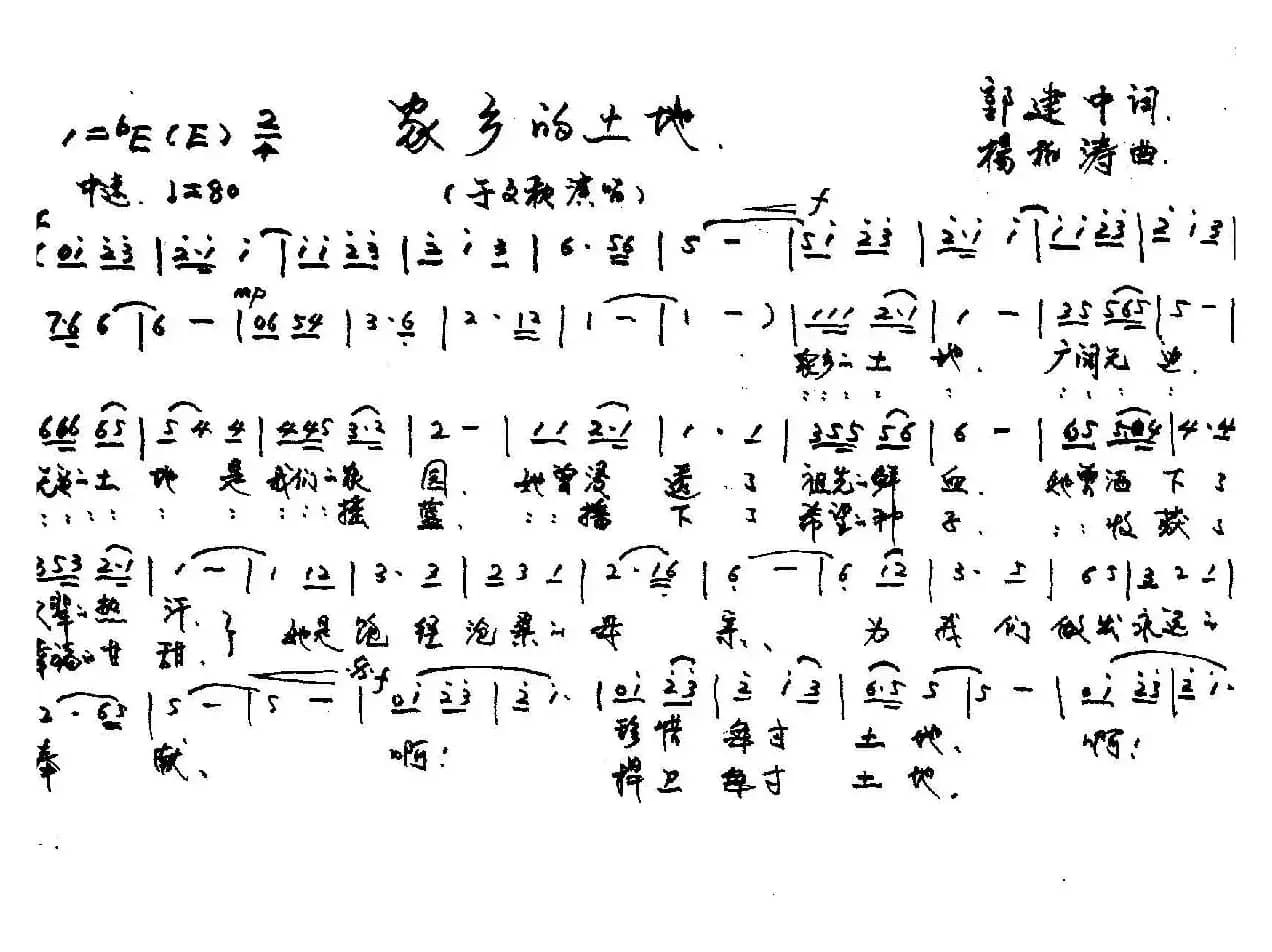 家乡的土地
1=♭E(E) 2/4
郭建中词
楊柏涛曲
中速 ♩=80
(于文歌演唱)
f
(0i 2̇3̇ | 2̇·i i | ii 2̇3̇ | 2̇ i 3 | 6·56 | 5 - | 5i 2̇3̇ | 2̇·i i | ii 2̇3̇ | 2̇ i 3 |
mp
7·6 6 | 6 - | 06 54 | 3·6 | 2·12 | 1 - | 1 - ) | 111 2·1 | 1 - | 35 565 | 5 - |
家乡的土地 广阔无边
666 65 | 5 4 4 | 445 3·2 | 2 - | 11 2·1 | 1·1 | 355 56 | 6 - | 65 54 | 4·4
土地是我们的家园 她曾浸透了祖先的鲜血 她曾洒下了
摇蓝 播下了希望的种子 收获了
353 2·1 | 1 - | 1 12 | 3·3 | 2 3 1 | 2·16 | 6 - | 6 12 | 3·5 | 6 5 | 3 2 1 |
辈的热汗 她是饱经沧桑的母亲 为我们做出永远的
福的甘甜
f
2·65 | 5 - | 5 - | 0i 2̇3̇ | 2̇ i· | 0i 2̇3̇ | 2̇ i3̇ | 6·5 5 | 5 - | 0i 2̇3̇ | 2̇ i·
奉献 啊! 珍惜每寸土地 啊!
捍卫每寸土地